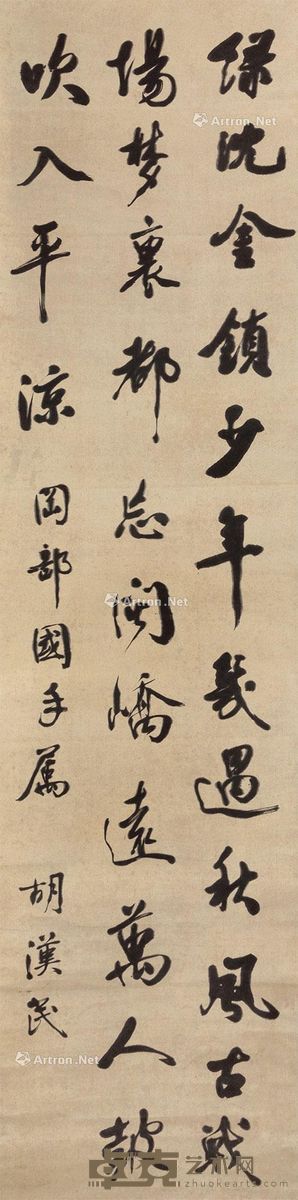 綠沈金鎖少年幾過秋風古戰
場夢裏都忘閩嶠遠萬人鼓
吹入平涼 岡部國手屬 胡漢民
Artron.Net
Artron.Net
Artron.Net
Artron.Net
卓克艺术网
zhuokearts.com